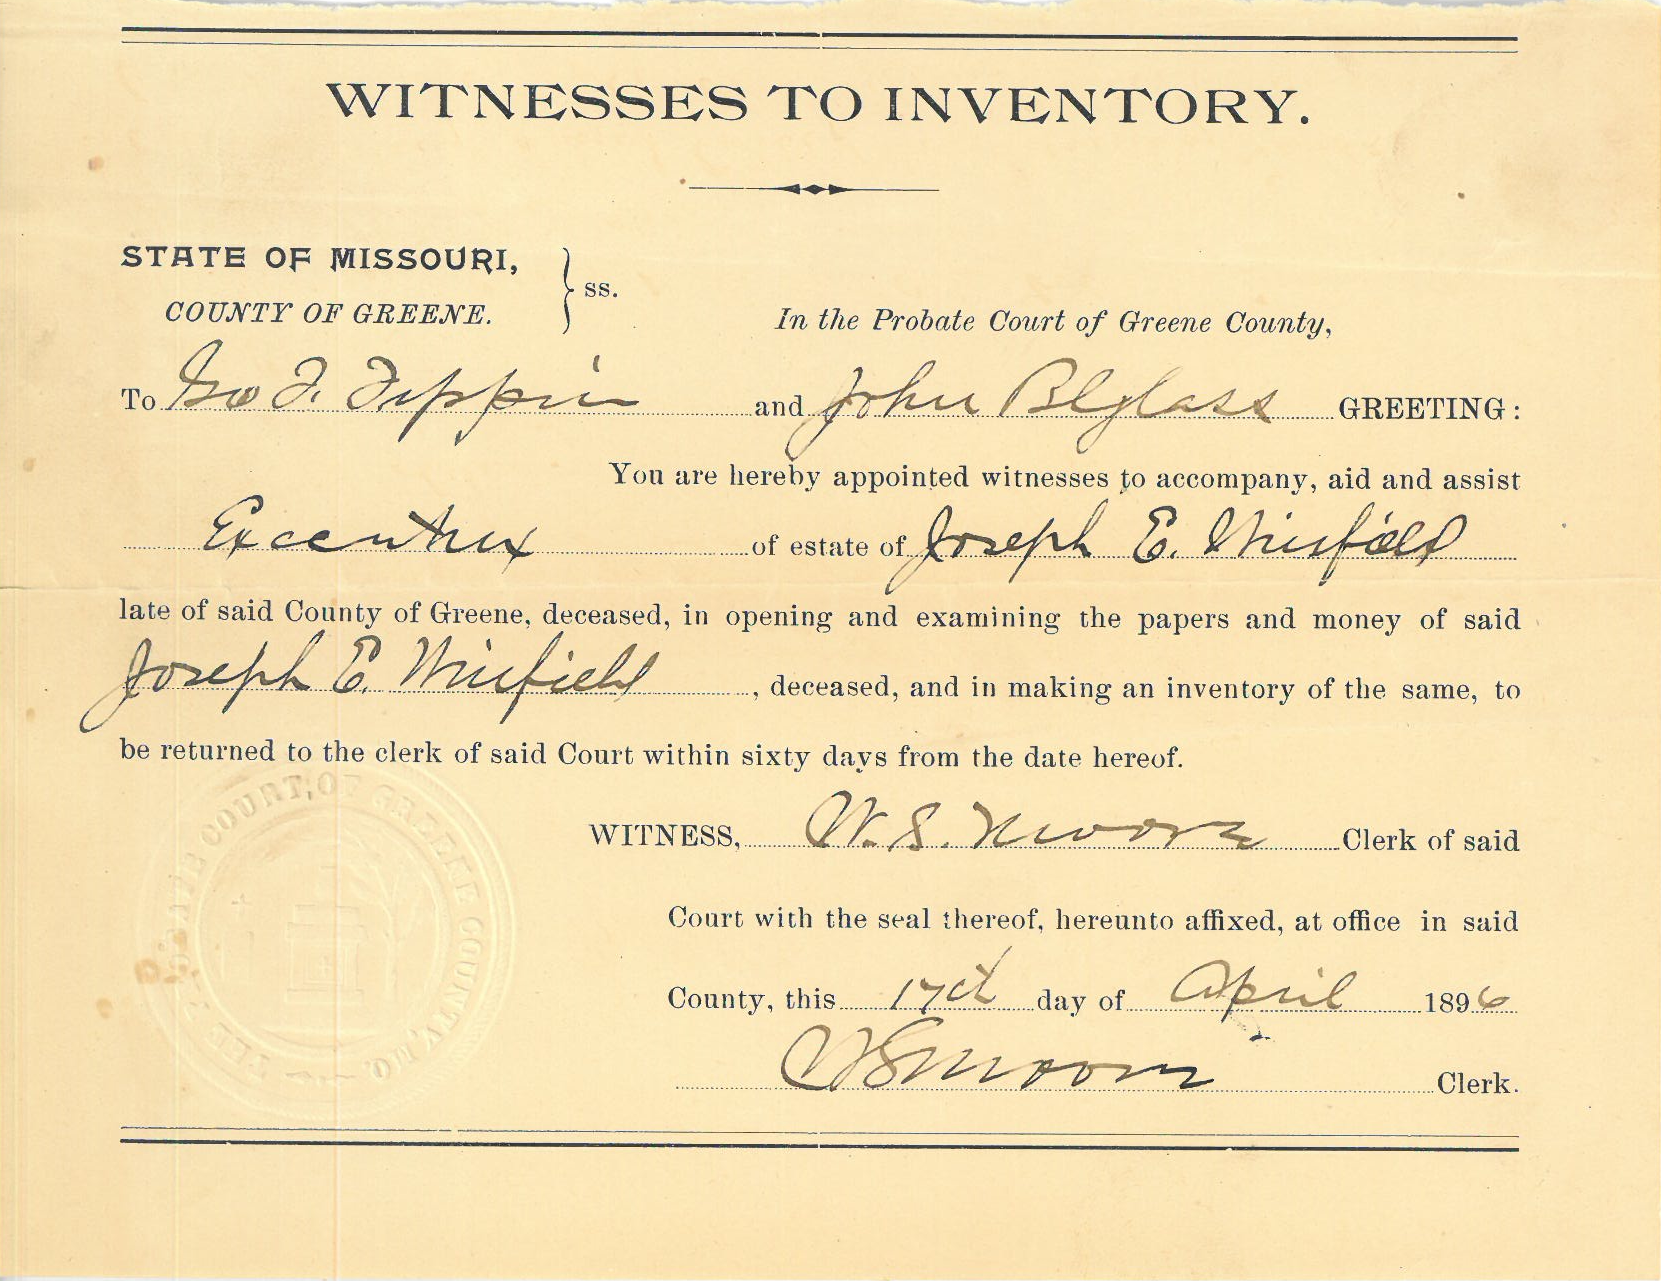 WITNESSES TO INVENTORY.
STATE OF MISSOURI,
COUNTY OF GREENE.
ss.
In the Probate Court of Greene County,
To Geo F. Tippin and John Blglass GREETING:
You are hereby appointed witnesses to accompany, aid and assist
Executrix of estate of Joseph E. Winfield
late of said County of Greene, deceased, in opening and examining the papers and money of said
Joseph E. Winfield, deceased, and in making an inventory of the same, to
be returned to the clerk of said Court within sixty days from the date hereof.
WITNESS, W. S. Moore Clerk of said
Court with the seal thereof, hereunto affixed, at office in said
County, this 17th day of April 1896
W S Moore Clerk.
PROBATE COURT, OF GREENE COUNTY, MO.